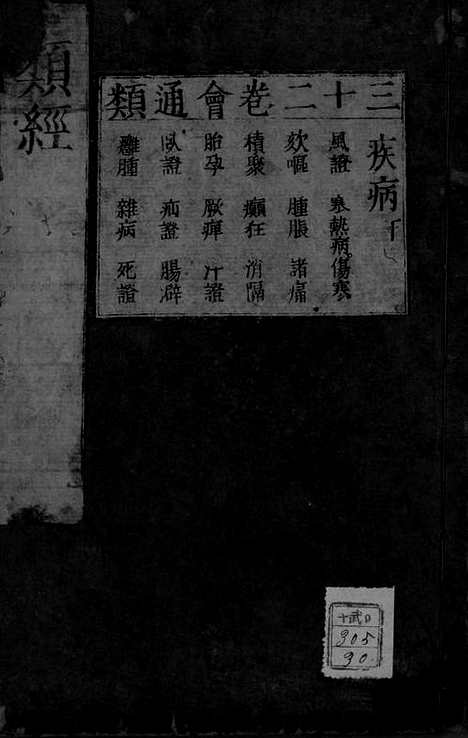 三十二卷會通類
疾病下
風證 寒熱病 傷寒
欬嘔 腫脹 諸痛
積聚 癲狂 消隔
胎孕 厥痺 汗證
臥證 疝證 腸辟
癰腫 雜病 死證
類經
305
90